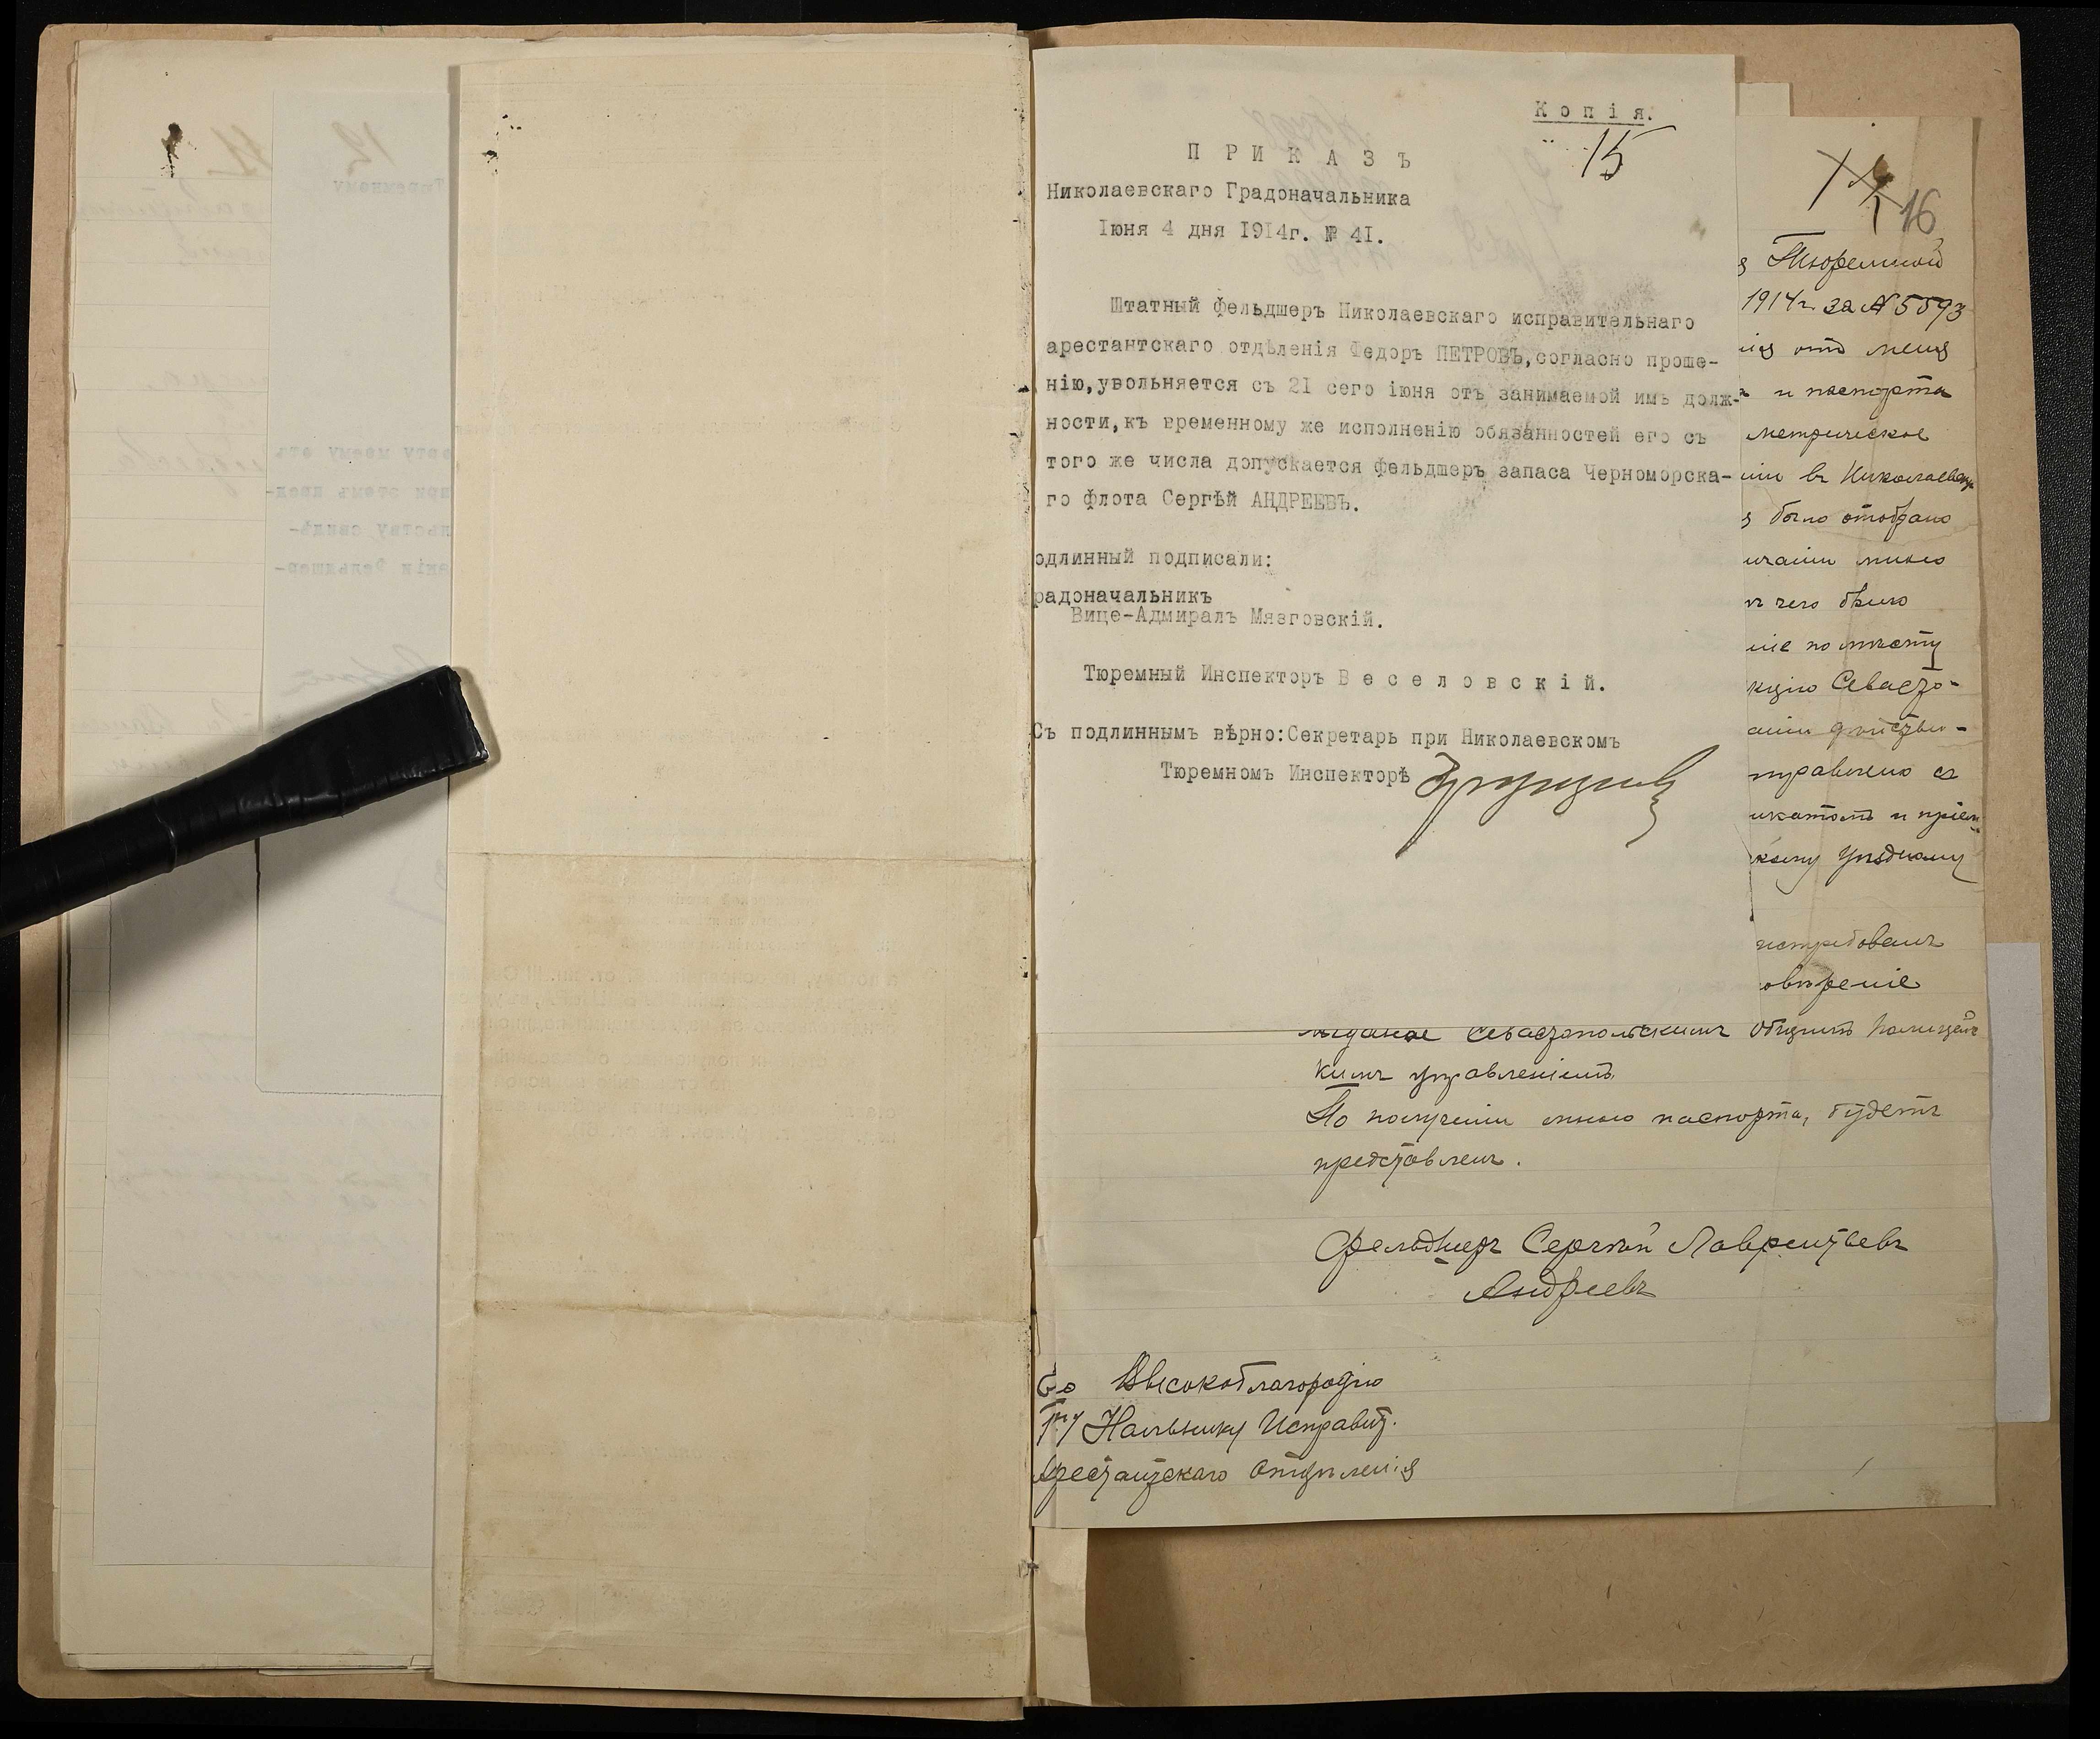 Копія.
15
ПРИКАЗЪ
Николаевскаго Градоначальника
Iюня 4 дня 1914г. № 41.
Штатный фельдшеръ Николаевскаго исправительнаго
арестантскаго отдѣленія Федоръ ПЕТРОВЪ, согласно проше-
нію, увольняется съ 21 сего іюня отъ занимаемой имъ долж-
ности, къ временному же исполненію обязанностей его съ
того же числа допускается фельдшеръ запаса Черноморска-
го флота Сергѣй АНДРЕЕВЪ.
одлинный подписали:
радоначальникъ
Вице-Адмиралъ Мязговскій.
Тюремный Инспекторъ Веселовскій.
Съ подлиннымъ вѣрно: Секретарь при Николаевскомъ
Тюремномъ Инспекторѣ
16
Тюремной
1914г. за № 5593
отъ меня
и паспорта
метрическое
въ Николаевск
было отобрано
мною
чего было
ніе по мѣсту
Севасто-
дѣйстви-
правлено съ
икатомъ и пріем
кому Уѣздному
истребованъ
овѣреніе
выданое Севастопольскимъ Общимъ Полицей
кимъ управленіемъ
По полученіи мною паспорта, будетъ
представленъ.
Фельдшеръ Сергѣй Лаврентьевъ
Андреевъ
Его Высокоблагородію
Г-ну Нач-льнику Исправит.
Арестантскаго Отдѣленія
12
11